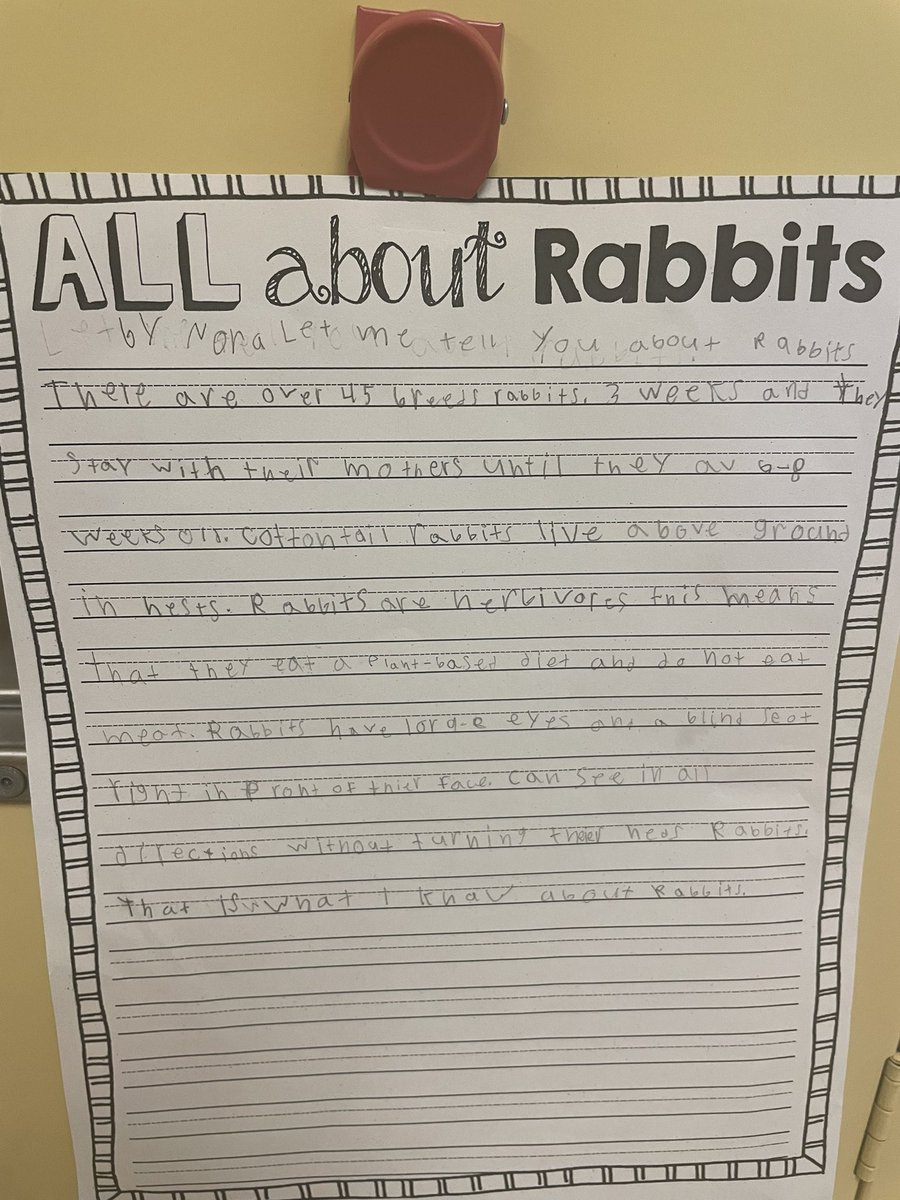 ALL about Rabbits
by Nora Let me tell you about Rabbits
There are over 45 breeds rabbits. 3 weeks and they
stay with their mothers until they av 6-8
weeks old. cottontail rabbits live above ground
in nests. Rabbits are herbivores this means
that they eat a plant-based diet and do not eat
meat. Rabbits have lorge eyes and a blind seot
right in Front of thier face. can see in all
directions without turning theer heds Rabbits.
that is what I knaw about Rabbits.